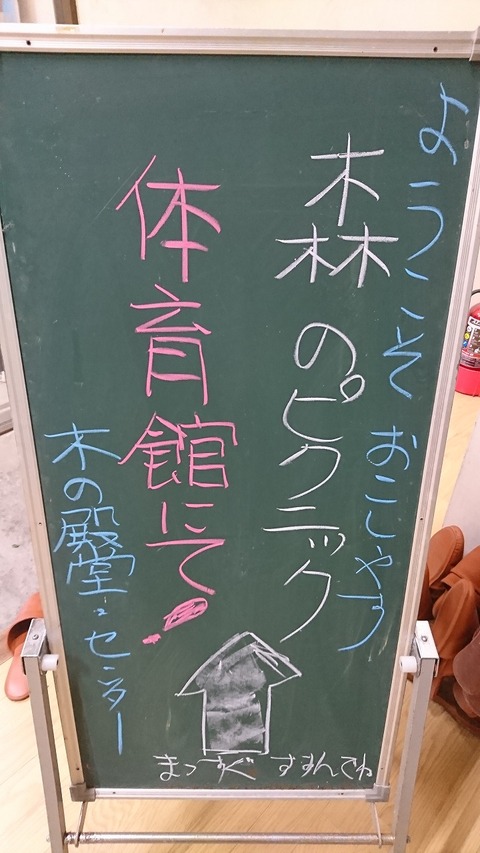 ようこそ おこしやす
森のピクニック
体育館にて!
木の殿堂・センター
まっすぐ すすんでね